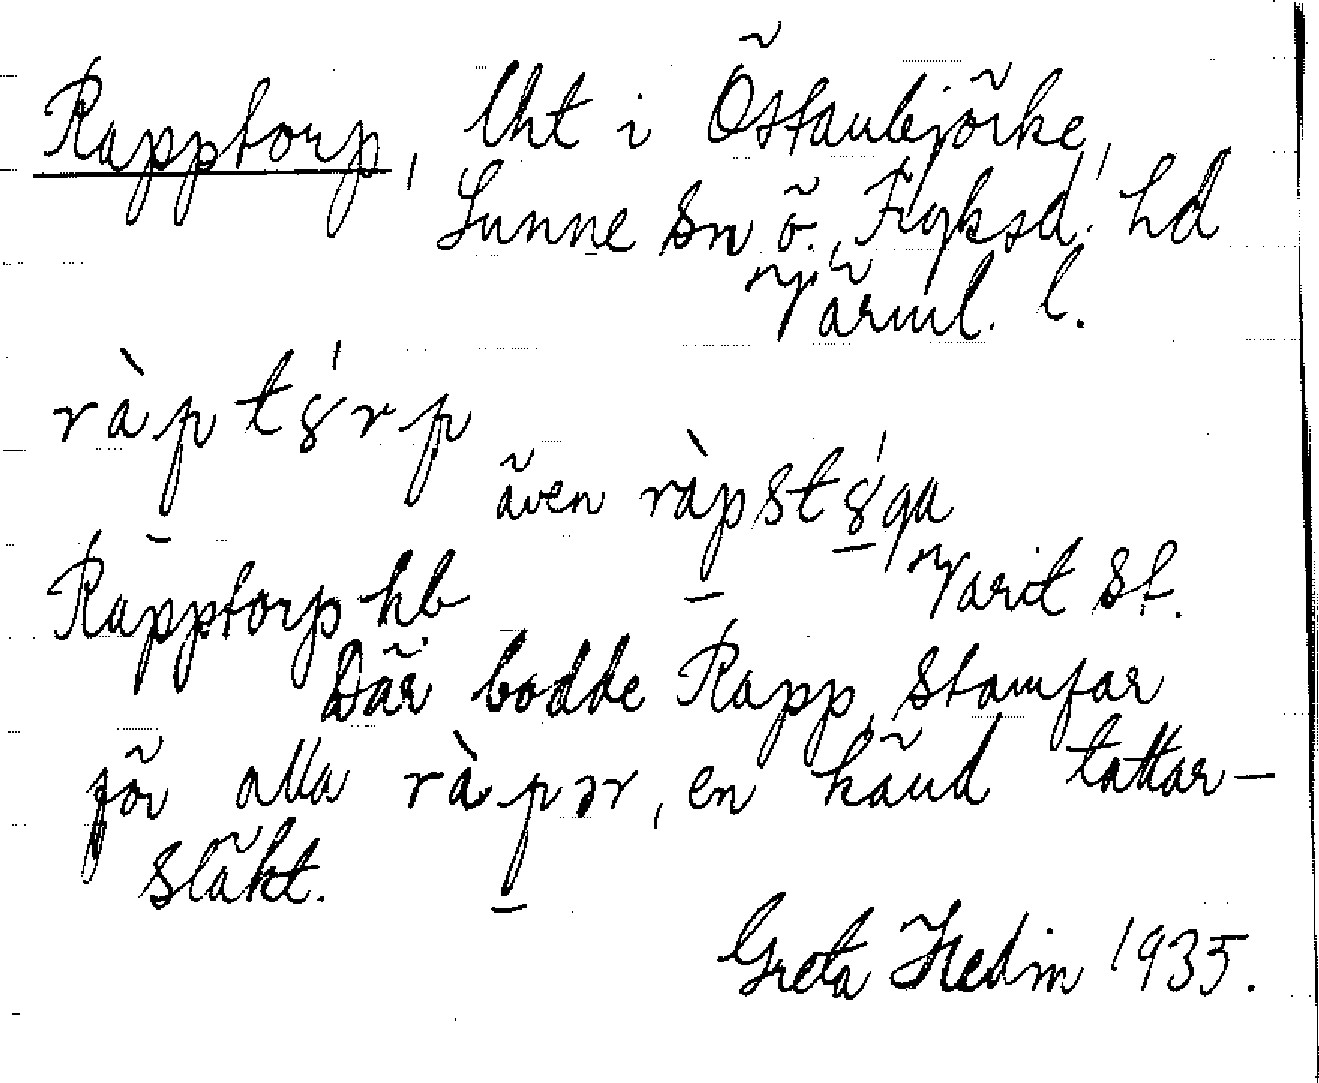 Rapptorp, lht i Östanbjörke,
Sunne sn Ö. Fryksd. hd
Värml. l.
ràptȣ́rp
även ràpstȣ́ga
Rapptorp hb Varit st.
Där bodde Rapp, stamfar
för alla ràpər, en känd tattar-
släkt.
Greta Hedin 1935.